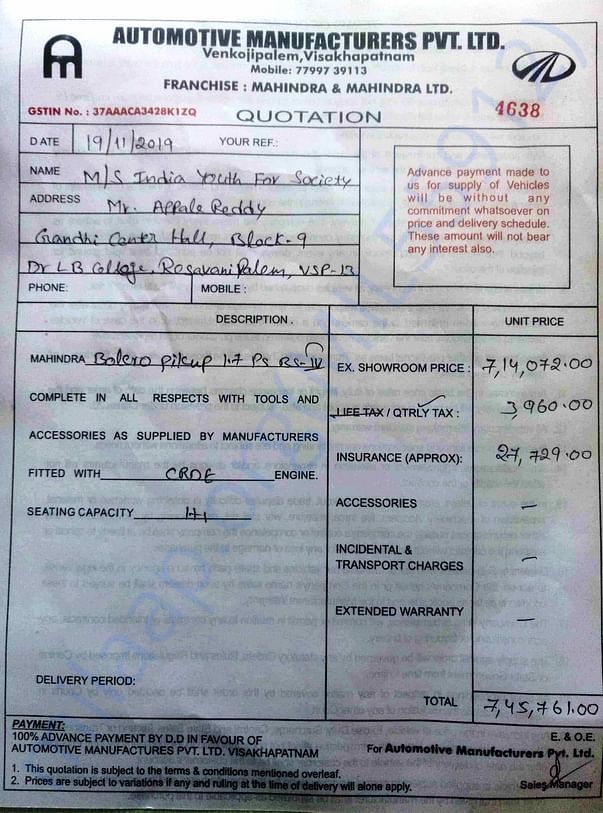 AUTOMOTIVE MANUFACTURERS PVT. LTD.
Venkojipalem, Visakhapatnam
Mobile: 77997 39113
FRANCHISE : MAHINDRA & MAHINDRA LTD.
GSTIN No. : 37AAACA3428K1ZQ
QUOTATION
4638
DATE 19/11/2019 YOUR REF.:
NAME M/S India Youth For Society
ADDRESS Mr. Appala Reddy
Gandhi Center Hall, Block-9
Dr L B College, Rosavani Palem, VSP-13
PHONE: MOBILE :
Advance payment made to
us for supply of Vehicles
will be without any
commitment whatsoever on
price and delivery schedule.
These amount will not bear
any interest also.
DESCRIPTION . UNIT PRICE
MAHINDRA Bolero pikup 1.7 Ps BS-IV
COMPLETE IN ALL RESPECTS WITH TOOLS AND
ACCESSORIES AS SUPPLIED BY MANUFACTURERS
FITTED WITH CRDE ENGINE.
SEATING CAPACITY 1+1
DELIVERY PERIOD:
EX. SHOWROOM PRICE : 7,14,072.00
LIFE TAX / QTRLY TAX : 3,960.00
INSURANCE (APPROX): 27,729.00
ACCESSORIES –
INCIDENTAL &
TRANSPORT CHARGES –
EXTENDED WARRANTY –
TOTAL 7,45,761.00
PAYMENT:
100% ADVANCE PAYMENT BY D.D IN FAVOUR OF
AUTOMOTIVE MANUFACTURES PVT. LTD. VISAKHAPATNAM
1. This quotation is subject to the terms & conditions mentioned overleaf.
2. Prices are subject to variations if any and ruling at the time of delivery will alone apply.
E. & O.E.
For Automotive Manufacturers Pvt. Ltd.
Sales Manager